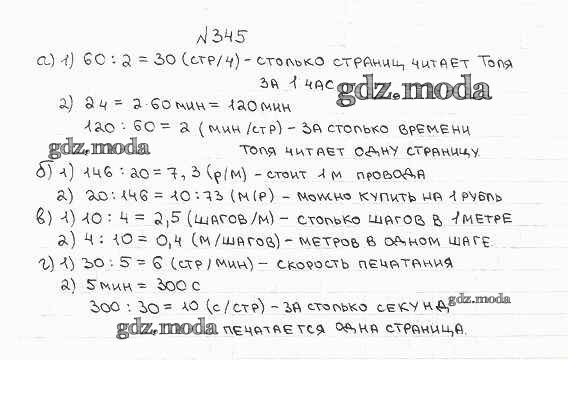 №345
а) 1) 60 : 2 = 30 (стр/ч) - столько страниц читает Толя
за 1 час
gdz.moda
2) 2ч = 2·60 мин = 120 мин
120 : 60 = 2 (мин/стр) - за столько времени
gdz.moda
Толя читает одну страницу.
б) 1) 146 : 20 = 7,3 (р/м) - стоит 1 м провода
2) 20 : 146 = 10 : 73 (м/р) - можно купить на 1 рубль
в) 1) 10 : 4 = 2,5 (шагов/м) - столько шагов в 1 метре
2) 4 : 10 = 0,4 (м/шагов) - метров в одном шаге.
г) 1) 30 : 5 = 6 (стр/мин) - скорость печатания
2) 5 мин = 300 с
300 : 30 = 10 (с/стр) - за столько секунд
gdz.moda
gdz.moda
печатается одна страница.